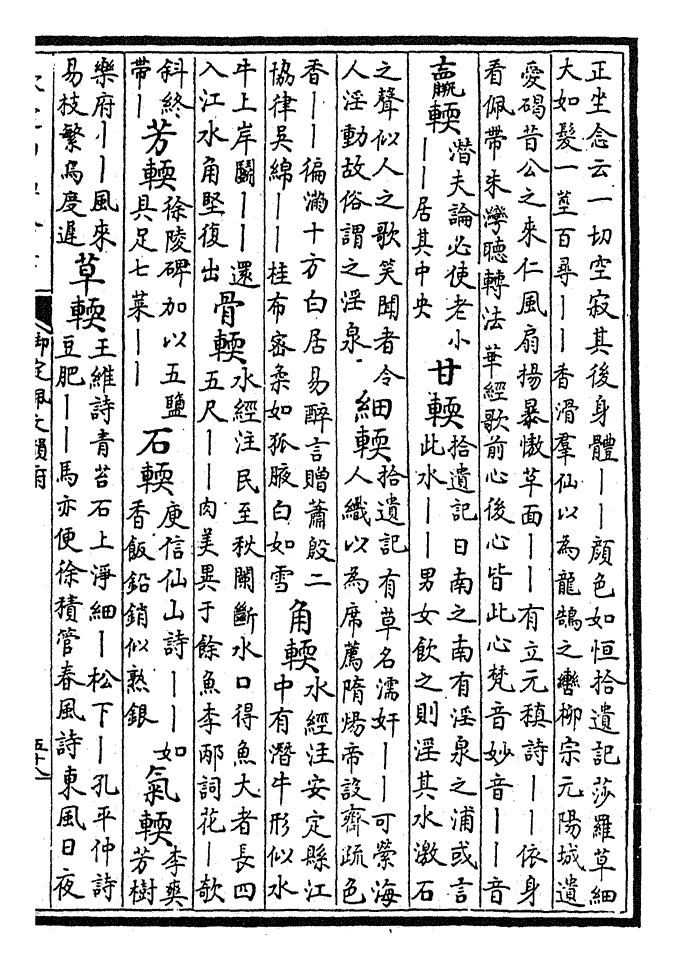 正坐念云一切空寂其後身體——顔色如恒拾遺記莎羅草細
大如髮一莖百尋——香滑羣仙以為龍鵠之轡柳宗元陽城遺
愛碣昔公之來仁風扇揚暴慠草面——有立元稹詩——依身
看佩帶朱灣聽轉法華經歌前心後心皆此心梵音妙音——音
羸輭
潛夫論必使老小
——居其中央
甘輭
拾遺記日南之南有淫泉之浦或言
此水——男女飲之則淫其水激石
之聲似人之歌笑聞者令
人淫動故俗謂之淫泉
細輭
拾遺記有草名濡奸——可縈海
人織以為席薦隋煬帝設齊疏色
香——徧滿十方白居易醉言贈蕭殷二
協律吳綿——桂布密柔如狐腋白如雪
角輭
水經注安定縣江
中有潛牛形似水
牛上岸鬭——還
入江水角堅復出
骨輭
水經注民至秋闌斷水口得魚大者長四
五尺——肉美異于餘魚李邴詞花—欹
斜終
帶—
芳輭
徐陵碑加以五鹽
具足七菜——
石輭
庾信仙山詩——如
香飯鉛銷似熟銀
氣輭
李爽
芳樹
樂府——風來
易枝繁烏度遲
草輭
王維詩青苔石上淨細—松下—孔平仲詩
豆肥——馬亦便徐積管春風詩東風日夜
御定佩文韻府
五十八